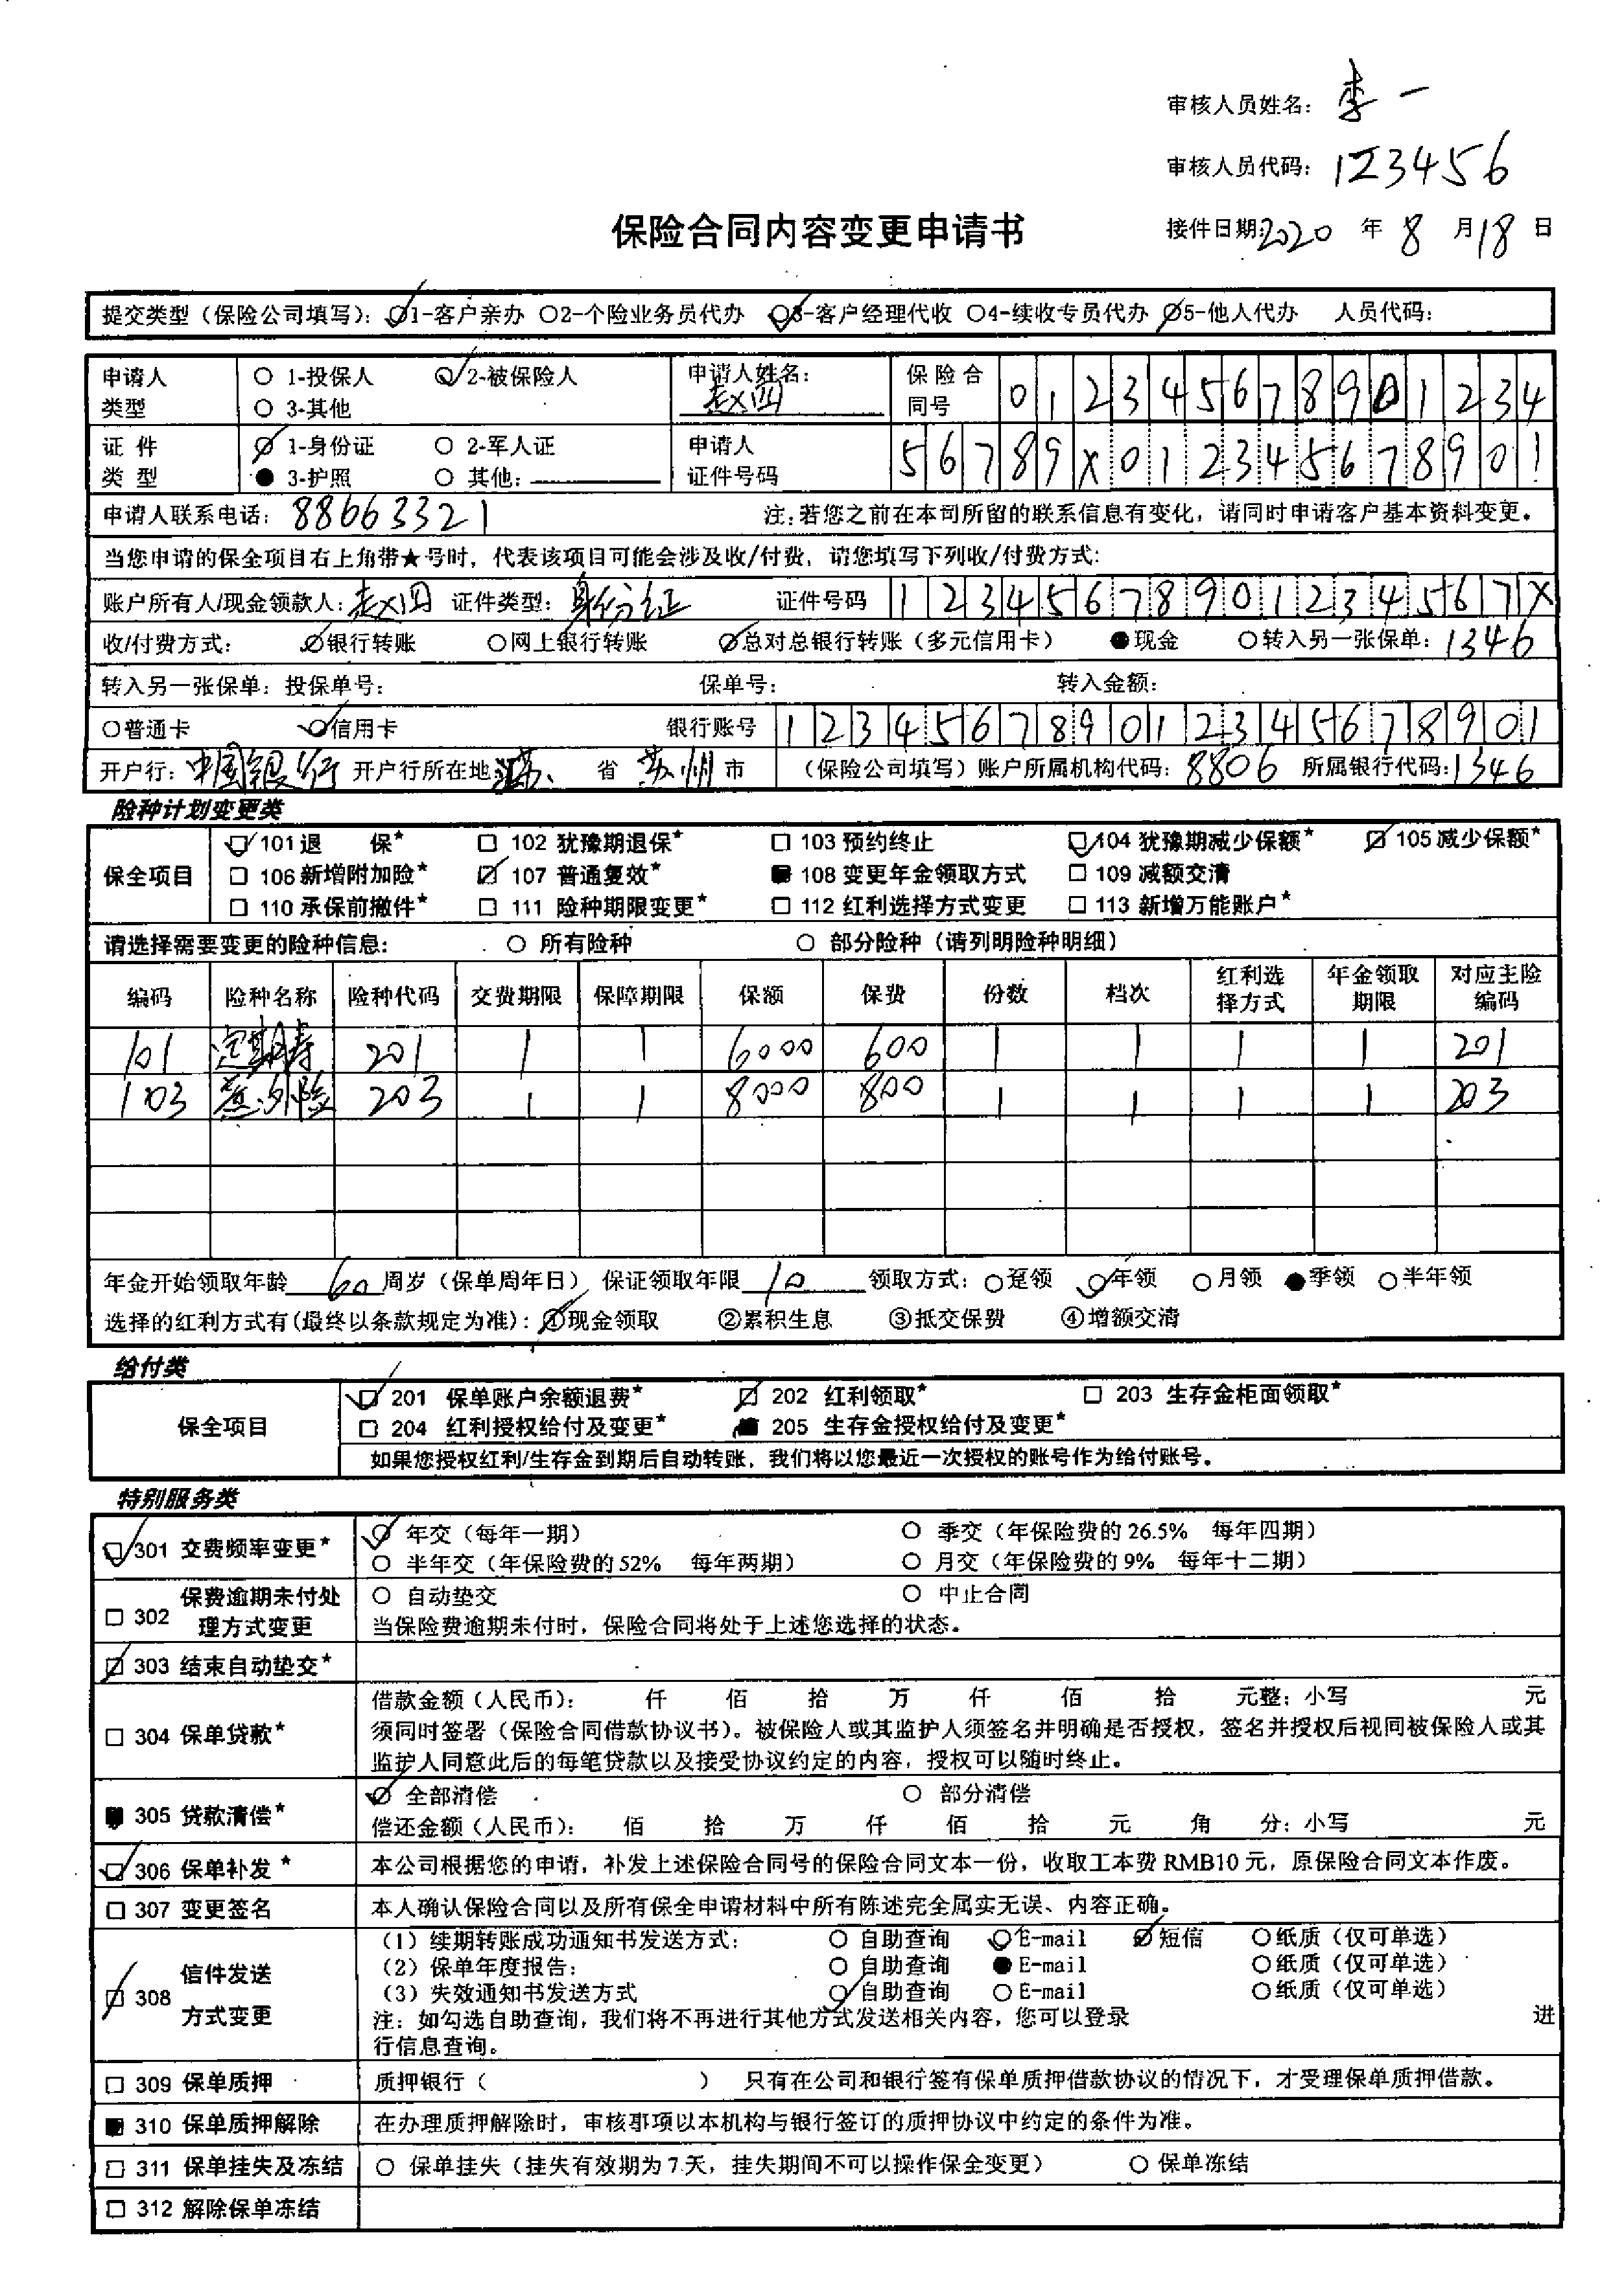 审核人员姓名：李一
审核人员代码：123456
保险合同内容变更申请书
接件日期：2020 年 8 月 18 日
提交类型（保险公司填写）：○1-客户亲办 ○2-个险业务员代办 ○3-客户经理代收 ○4-续收专员代办 ○5-他人代办 人员代码：
申请人类型 ○ 1-投保人 ○ 2-被保险人 ○ 3-其他 申请人姓名：赵四 保险合同号 012345678901234
证件类型 ○ 1-身份证 ○ 2-军人证 ● 3-护照 ○ 其他： 申请人证件号码 56789X012345678901
申请人联系电话：88663321 注：若您之前在本司所留的联系信息有变化，请同时申请客户基本资料变更。
当您申请的保全项目右上角带★号时，代表该项目可能会涉及收/付费，请您填写下列收/付费方式：
账户所有人/现金领款人：赵四 证件类型：身份证 证件号码 12345678901234567X
收/付费方式： ○银行转账 ○网上银行转账 ○总对总银行转账（多元信用卡） ●现金 ○转入另一张保单：1346
转入另一张保单：投保单号： 保单号： 转入金额：
○普通卡 ○信用卡 银行账号 123456789012345678901
开户行：中国银行 开户行所在地 江苏 省 苏州 市 （保险公司填写）账户所属机构代码：8806 所属银行代码：1346
险种计划变更类
保全项目 □ 101 退 保★ □ 102 犹豫期退保★ □ 103 预约终止 □ 104 犹豫期减少保额★ □ 105 减少保额★
□ 106 新增附加险★ □ 107 普通复效★ ■ 108 变更年金领取方式 □ 109 减额交清
□ 110 承保前撤件★ □ 111 险种期限变更★ □ 112 红利选择方式变更 □ 113 新增万能账户★
请选择需要变更的险种信息： ○ 所有险种 ○ 部分险种（请列明险种明细）
编码 险种名称 险种代码 交费期限 保障期限 保额 保费 份数 档次 红利选择方式 年金领取期限 对应主险编码
101 定期寿 201 1 1 6000 600 1 1 1 1 201
103 意外险 203 1 1 8000 800 1 1 1 1 203
年金开始领取年龄 60 周岁（保单周年日） 保证领取年限 10 领取方式：○趸领 ○年领 ○月领 ●季领 ○半年领
选择的红利方式有（最终以条款规定为准）：①现金领取 ②累积生息 ③抵交保费 ④增额交清
给付类
保全项目 □ 201 保单账户余额退费★ □ 202 红利领取★ □ 203 生存金柜面领取★
□ 204 红利授权给付及变更★ ■ 205 生存金授权给付及变更★
如果您授权红利/生存金到期后自动转账，我们将以您最近一次授权的账号作为给付账号。
特别服务类
□ 301 交费频率变更★ ○ 年交（每年一期） ○ 季交（年保险费的 26.5% 每年四期）
○ 半年交（年保险费的 52% 每年两期） ○ 月交（年保险费的 9% 每年十二期）
□ 302 保费逾期未付处理方式变更 ○ 自动垫交 ○ 中止合同
当保险费逾期未付时，保险合同将处于上述您选择的状态。
□ 303 结束自动垫交★
□ 304 保单贷款★ 借款金额（人民币）： 仟 佰 拾 万 仟 佰 拾 元整；小写 元
须同时签署（保险合同借款协议书）。被保险人或其监护人须签名并明确是否授权，签名并授权后视同被保险人或其
监护人同意此后的每笔贷款以及接受协议约定的内容，授权可以随时终止。
■ 305 贷款清偿★ ○ 全部清偿 ○ 部分清偿
偿还金额（人民币）： 佰 拾 万 仟 佰 拾 元 角 分；小写 元
□ 306 保单补发★ 本公司根据您的申请，补发上述保险合同号的保险合同文本一份，收取工本费 RMB10 元，原保险合同文本作废。
□ 307 变更签名 本人确认保险合同以及所有保全申请材料中所有陈述完全属实无误、内容正确。
□ 308 信件发送方式变更 （1）续期转账成功通知书发送方式： ○ 自助查询 ○ E-mail ○ 短信 ○纸质（仅可单选）
（2）保单年度报告： ○ 自助查询 ● E-mail ○纸质（仅可单选）
（3）失效通知书发送方式 ○ 自助查询 ○ E-mail ○纸质（仅可单选）
注：如勾选自助查询，我们将不再进行其他方式发送相关内容，您可以登录 进
行信息查询。
□ 309 保单质押 质押银行（ ） 只有在公司和银行签有保单质押借款协议的情况下，才受理保单质押借款。
■ 310 保单质押解除 在办理质押解除时，审核事项以本机构与银行签订的质押协议中约定的条件为准。
□ 311 保单挂失及冻结 ○ 保单挂失（挂失有效期为 7 天，挂失期间不可以操作保全变更） ○ 保单冻结
□ 312 解除保单冻结